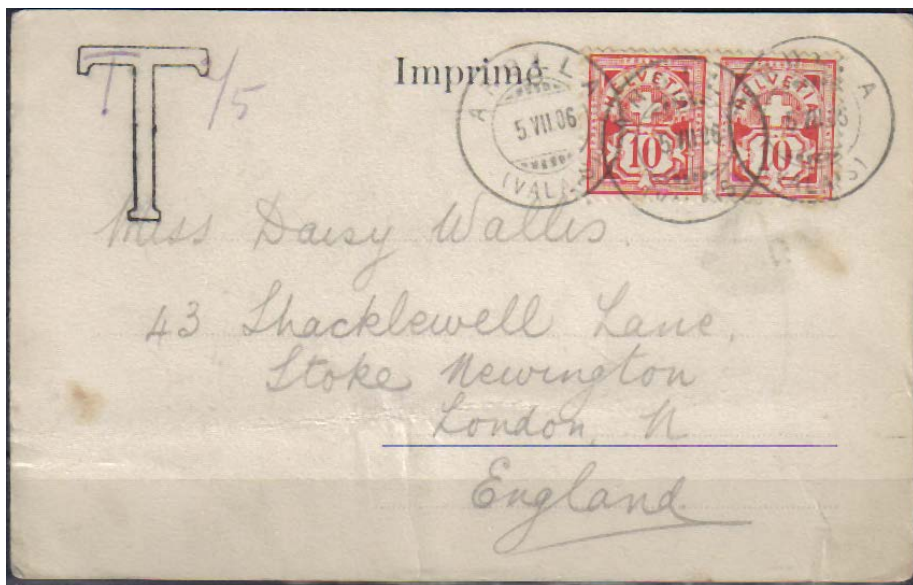 T T 4/5
Imprimé
HELVETIA 10
HELVETIA 10
5.VII.06
Miss Daisy Wallis
43 Shacklewell Lane,
Stoke Newington
London, N
England